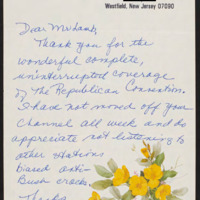 Westfield, New Jersey 07090
Dear Mr Lamb,
Thank you for the
wonderful complete,
uninterrupted coverage
of the Republican Convention.
I have not moved off your
channel all week and do
appreciate not listening to
other stations
biased anti-
Bush cracks.
Thanks